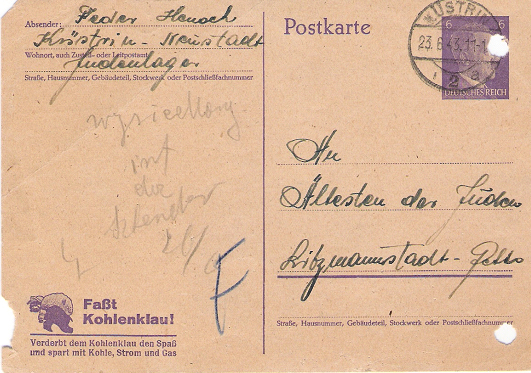 Absender: Feder Henoch
Küstrin - Neustadt
Wohnort, auch Zustell- oder Leitpostamt
Judenlager
Straße, Hausnummer, Gebäudeteil, Stockwerk oder Postschließfachnummer
Postkarte
KÜSTRIN
23.6.43.11-
2
6 6
DEUTSCHES REICH
An
Ältesten der Juden
Litzmannstadt - Getto
Straße, Hausnummer, Gebäudeteil, Stockwerk oder Postschließfachnummer
F
Faßt
Kohlenklau!
Verderbt dem Kohlenklau den Spaß
und spart mit Kohle, Strom und Gas